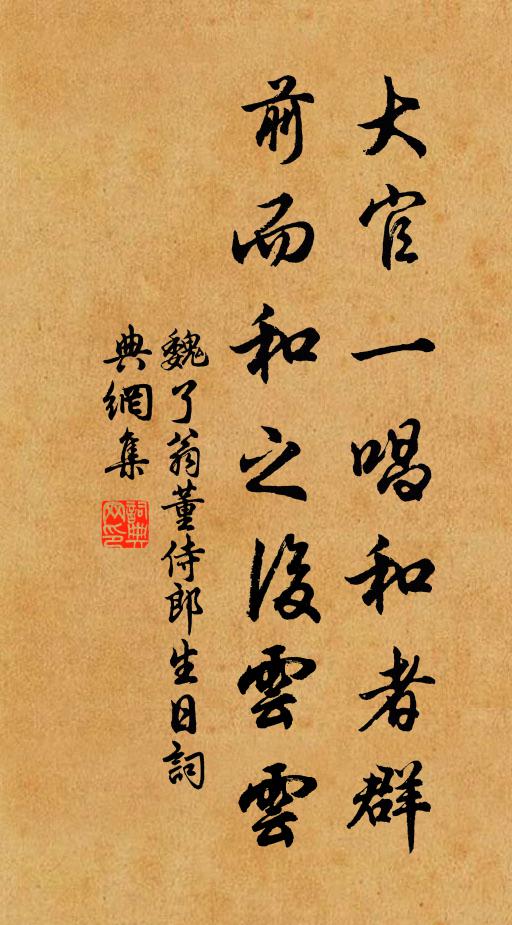 大官一唱和者群
前而和之後雲雲
魏了翁董侍郎生日詞
典網集
詞典網印